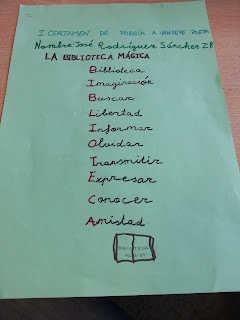 I CERTAMEN DE POESÍA A VUESTRO POETA
Nombre: José Rodríguez Sánchez 2B
LA BIBLIOTECA MÁGICA
Biblioteca
Imaginación
Buscar
Libertad
Informar
Olvidar
Transmitir
Expresar
Conocer
Amistad
BIBLIOTECA